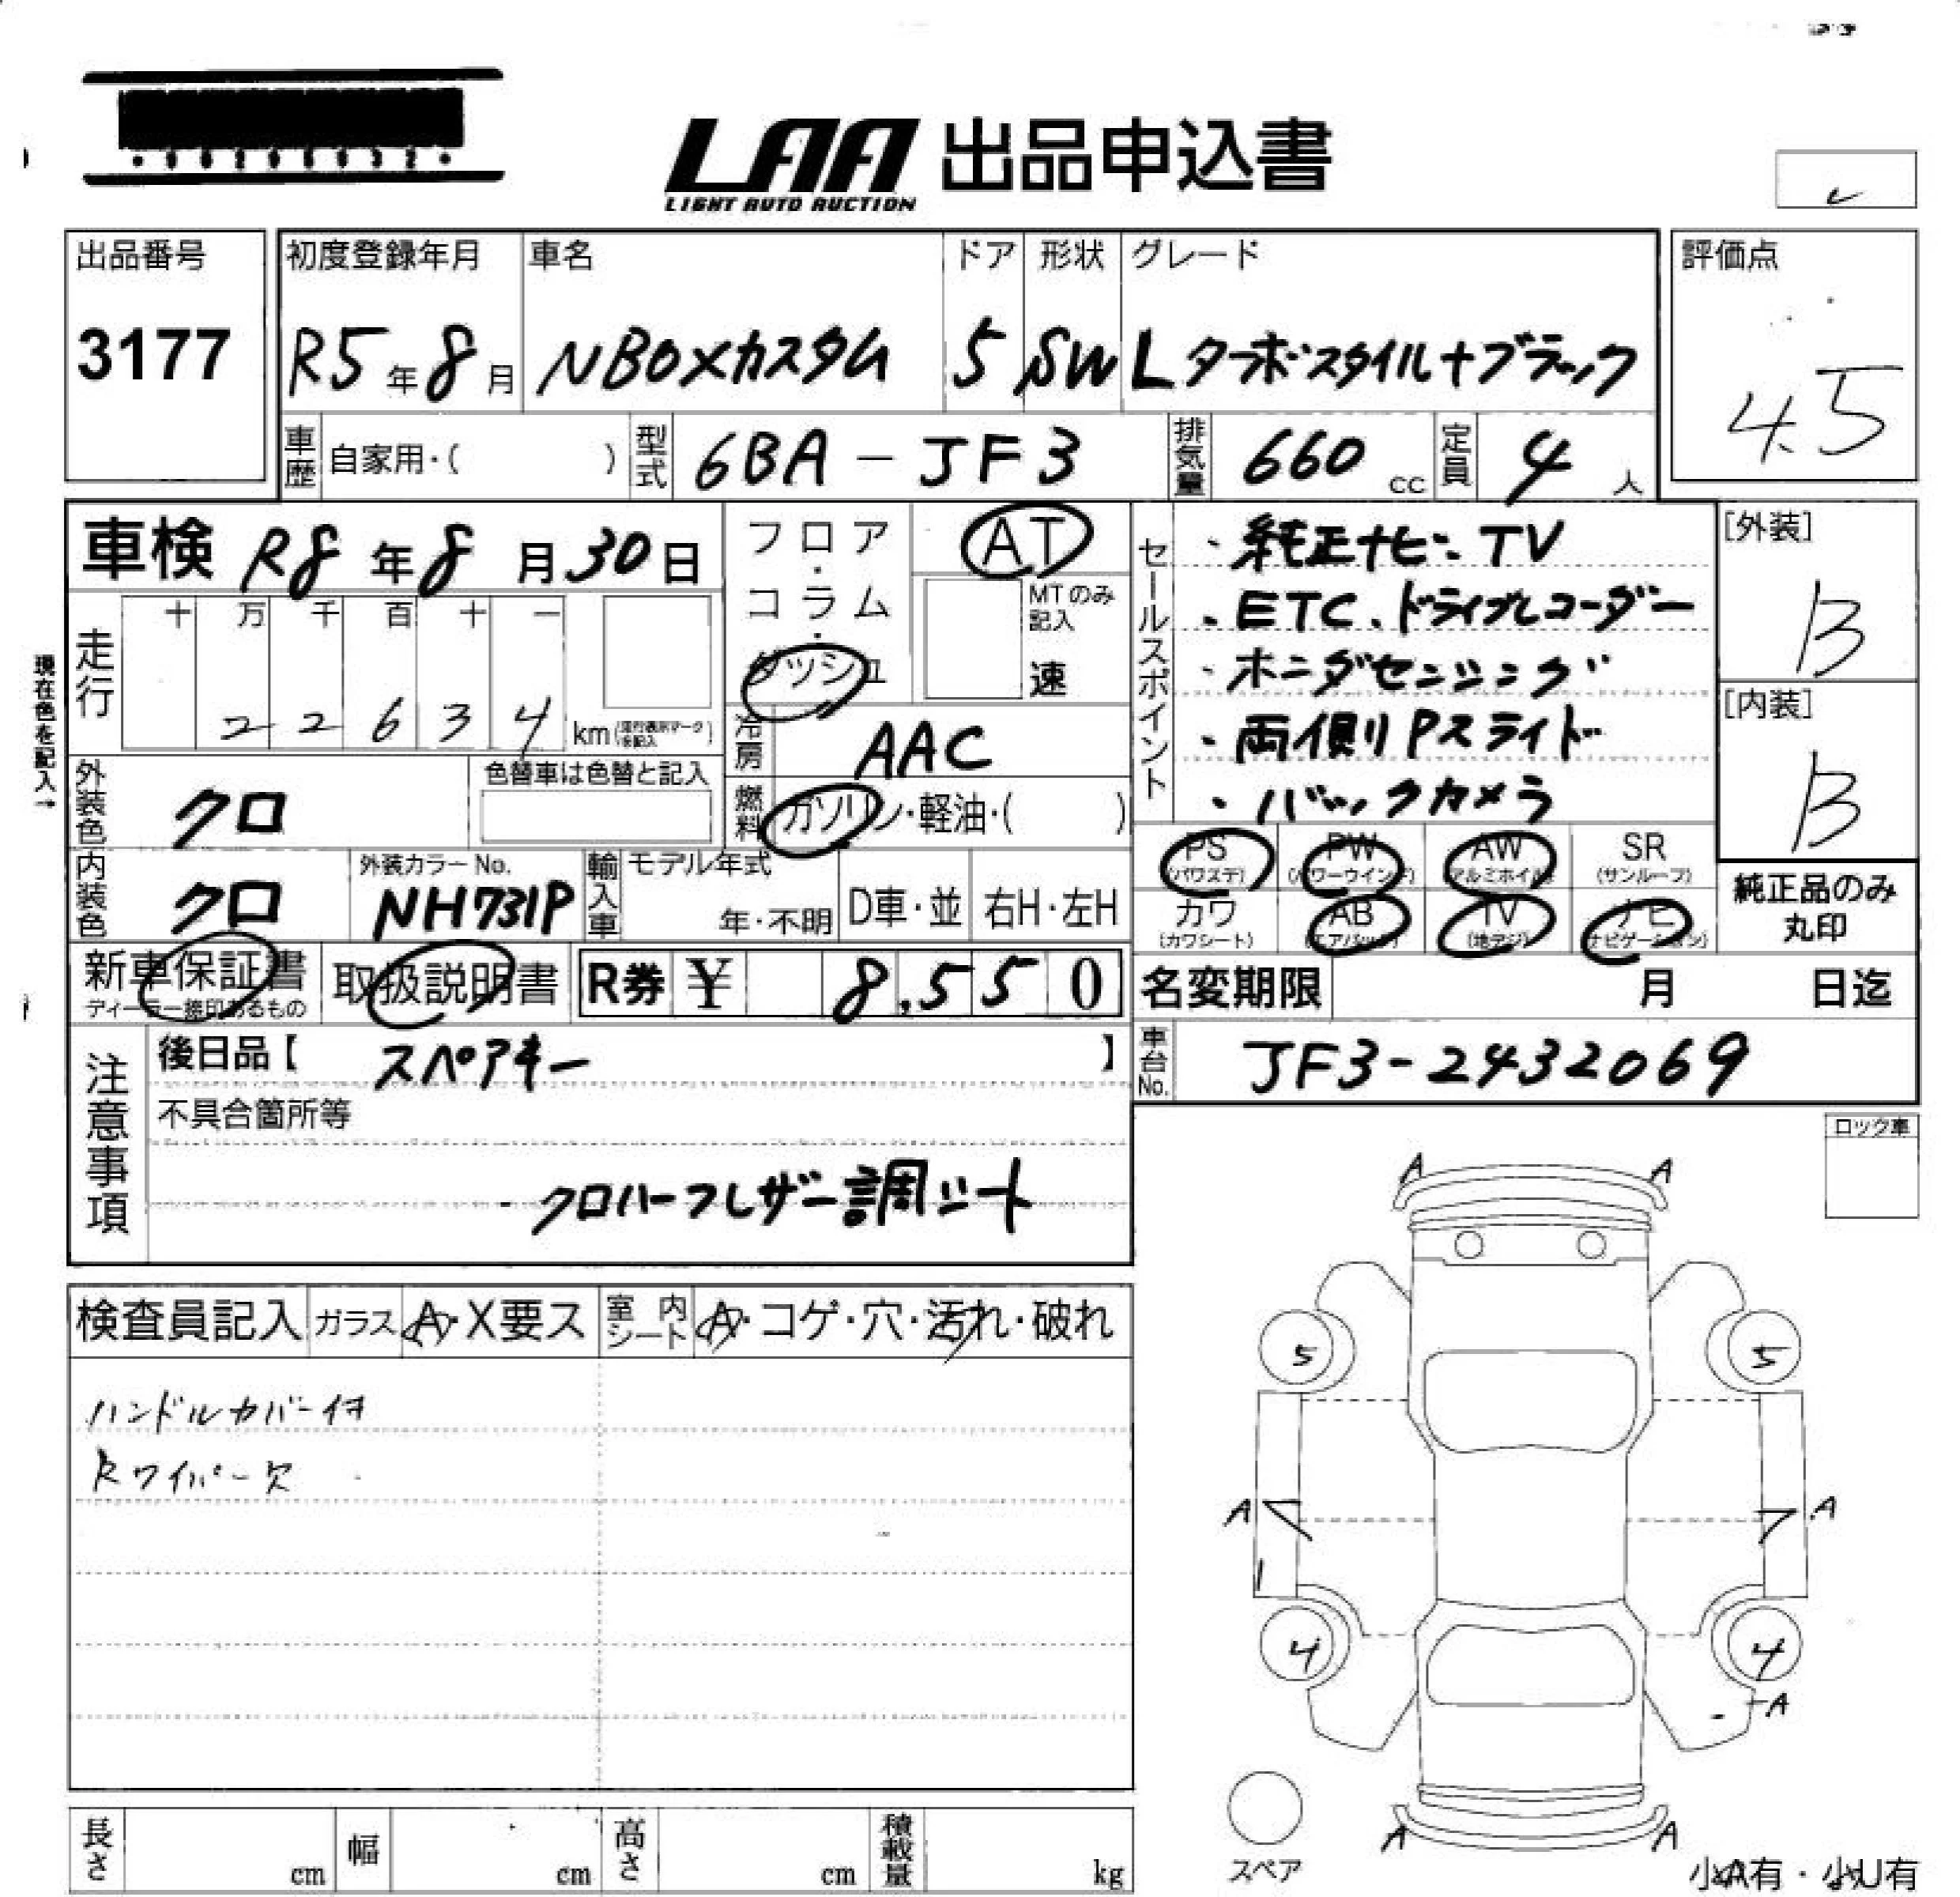 LAA 出品申込書
LIGHT AUTO AUCTION
出品番号
3177
初度登録年月 車名 ドア 形状 グレード
R5年8月 NBOXカスタム 5 SW Lターボスタイル+ブラック
評価点
4.5
車歴 自家用・( ) 型式 6BA-JF3 排気量 660 cc 定員 4人
車検 R8年8月30日
フロア・コラム・ダッシュ
AT
MTのみ記入
速
走行
十 万 千 百 十 一
2 2 6 3 4 km
現在色を記入→
冷房 AAC
燃料 ガソリン・軽油・( )
外装色 クロ
色替車は色替と記入
内装色 クロ
外装カラーNo.
NH731P
輸入車 モデル年式
年・不明 D車・並 右H・左H
セールスポイント
・純正ナビ・TV
・ETC、ドライブレコーダー
・ホンダセンシング
・両側りPスライド
・バックカメラ
[外装]
B
[内装]
B
PS PW AW SR
(パワステ) (パワーウインド) (アルミホイル) (サンルーフ)
カワ AB TV ナビ
(カワシート) (エアバック) (地デジ) (ナビゲーション)
純正品のみ
丸印
新車保証書 取扱説明書 R券 ¥ 8,550
名変期限 月 日迄
車台No. JF3-2432069
注意事項
後日品【 スペアキー 】
不具合箇所等
クロハーフレザー調シート
ロック車
検査員記入 ガラス A・X要ス 室内シート A・コゲ・穴・汚れ・破れ
ハンドルカバー付
Rワイパー欠
A A
5 5
A A
4 4
A
A A
スペア
小A有・小U有
長さ cm 幅 cm 高さ cm 積載量 kg